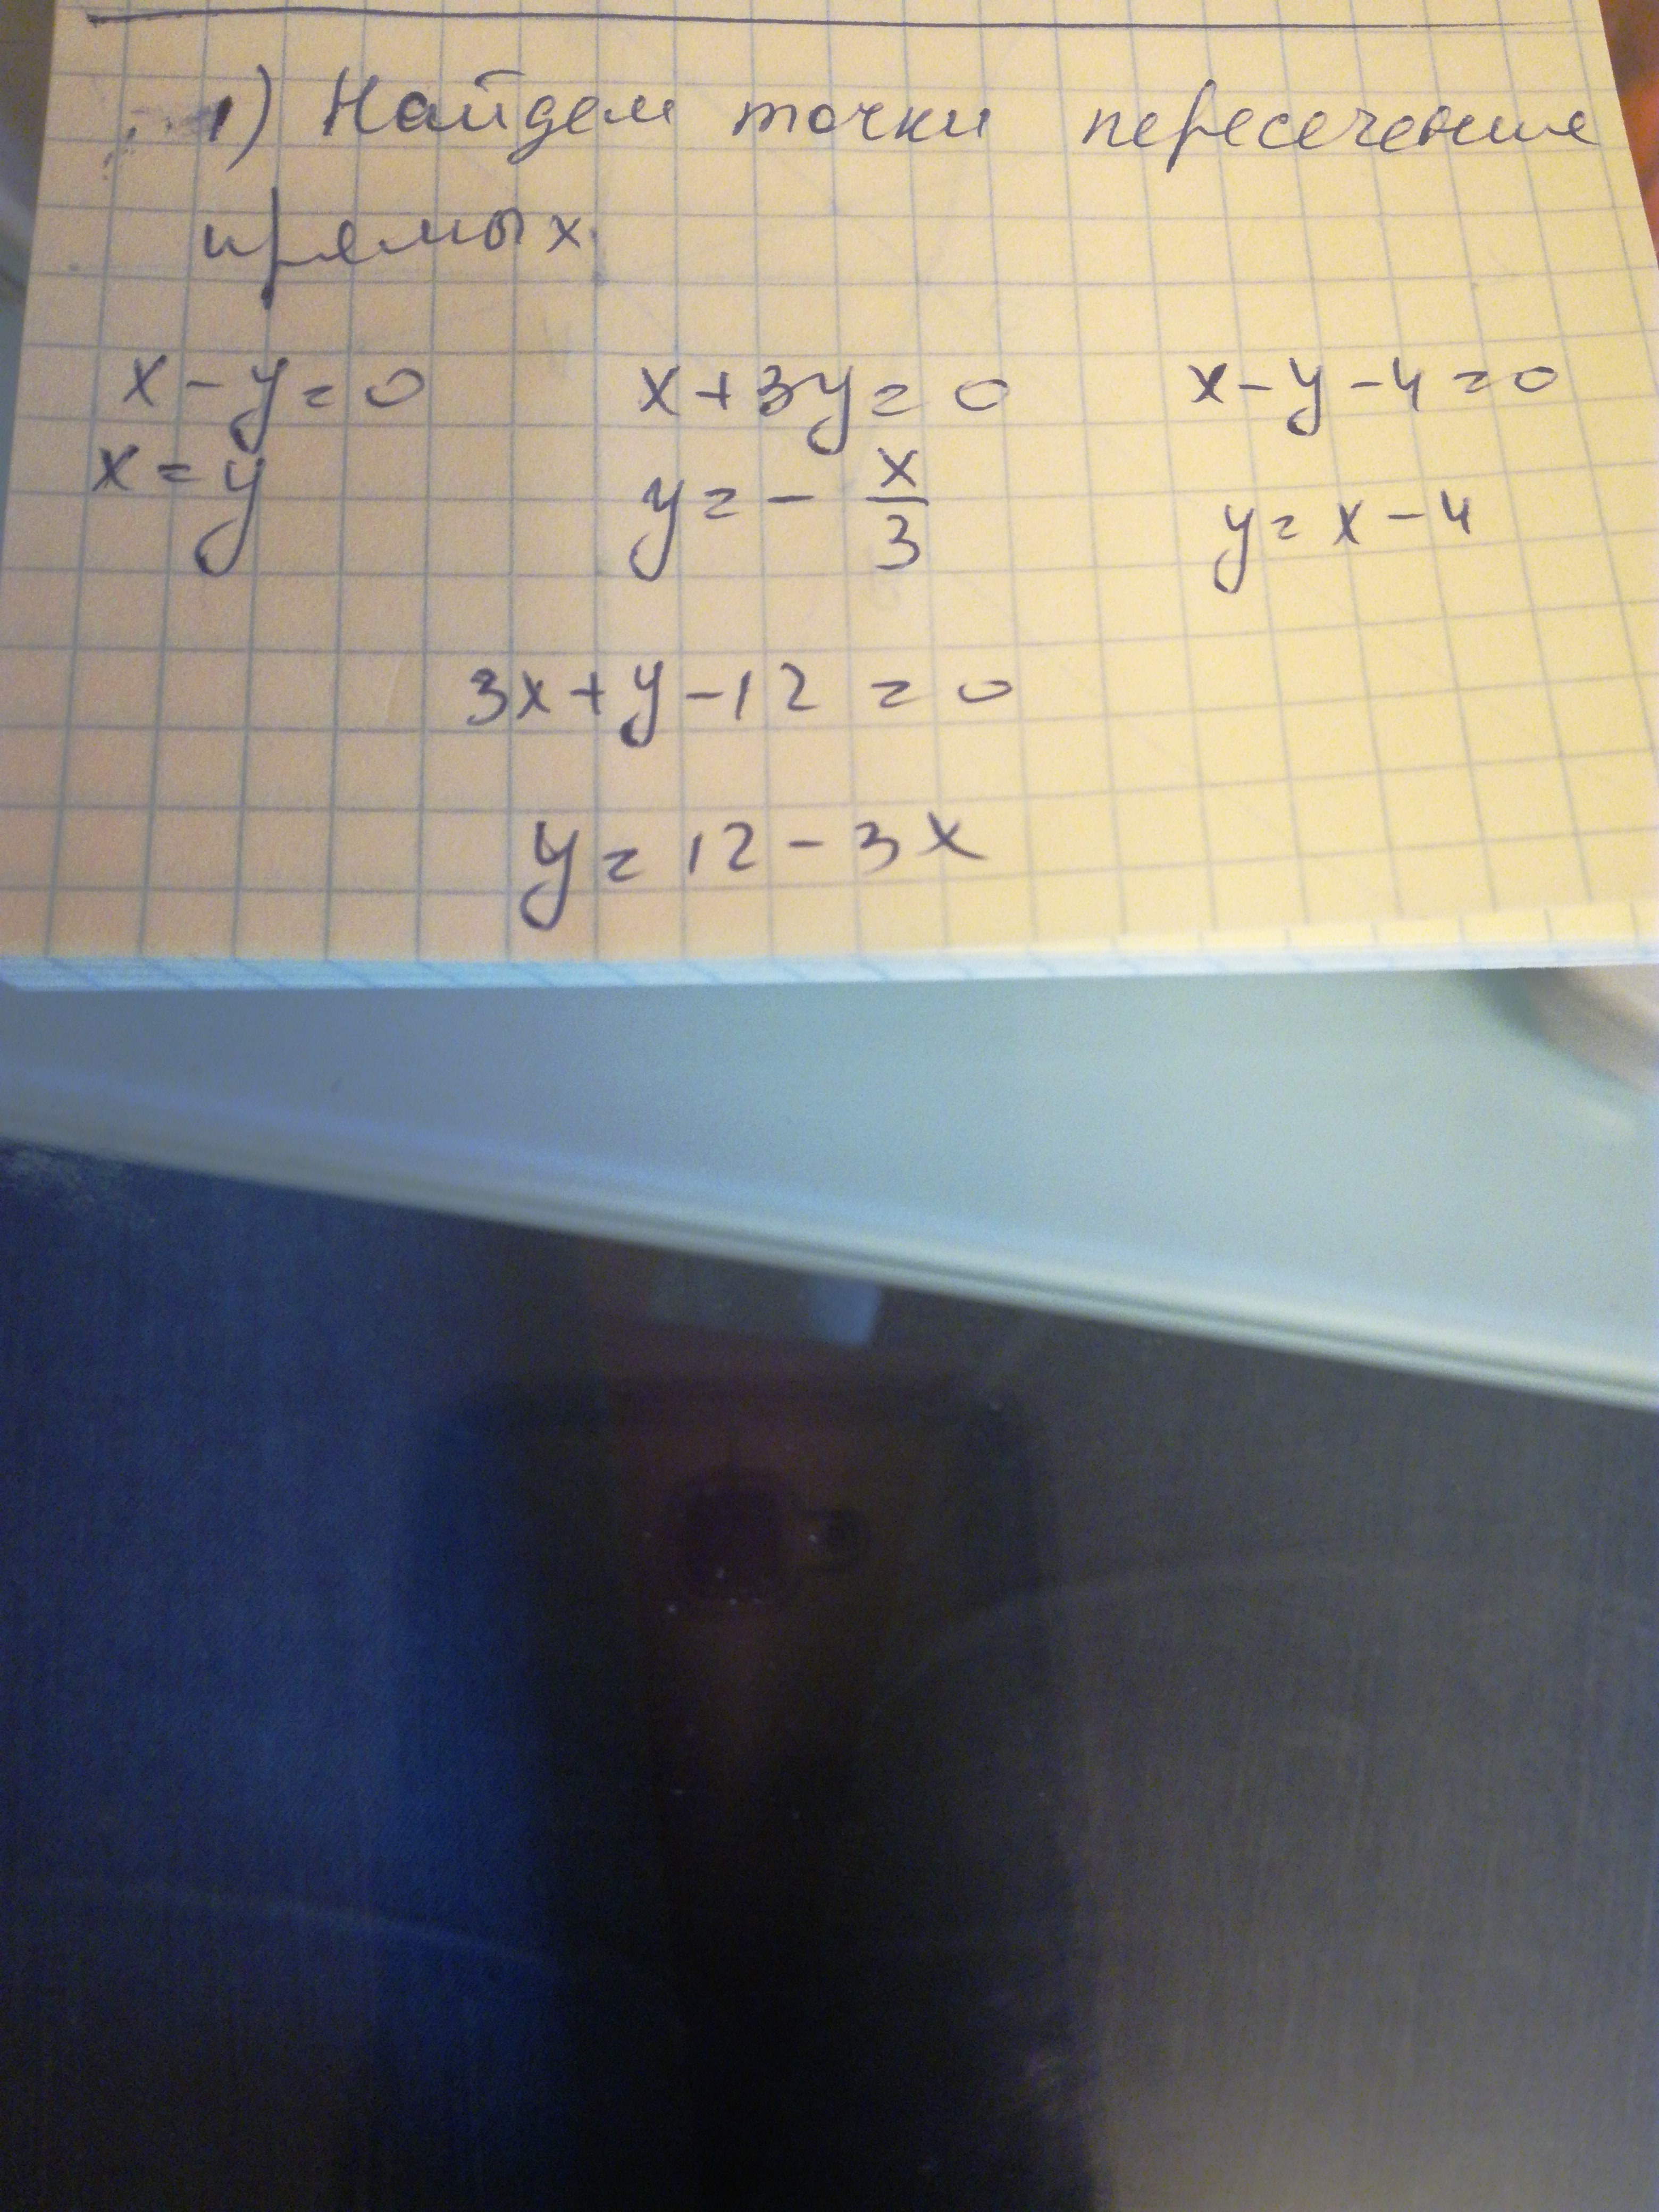 1) Найдем точки пересечение
прямых
x - y = 0 x + 3y = 0 x - y - 4 = 0
x = y y = - x/3 y = x - 4
3x + y - 12 = 0
y = 12 - 3x